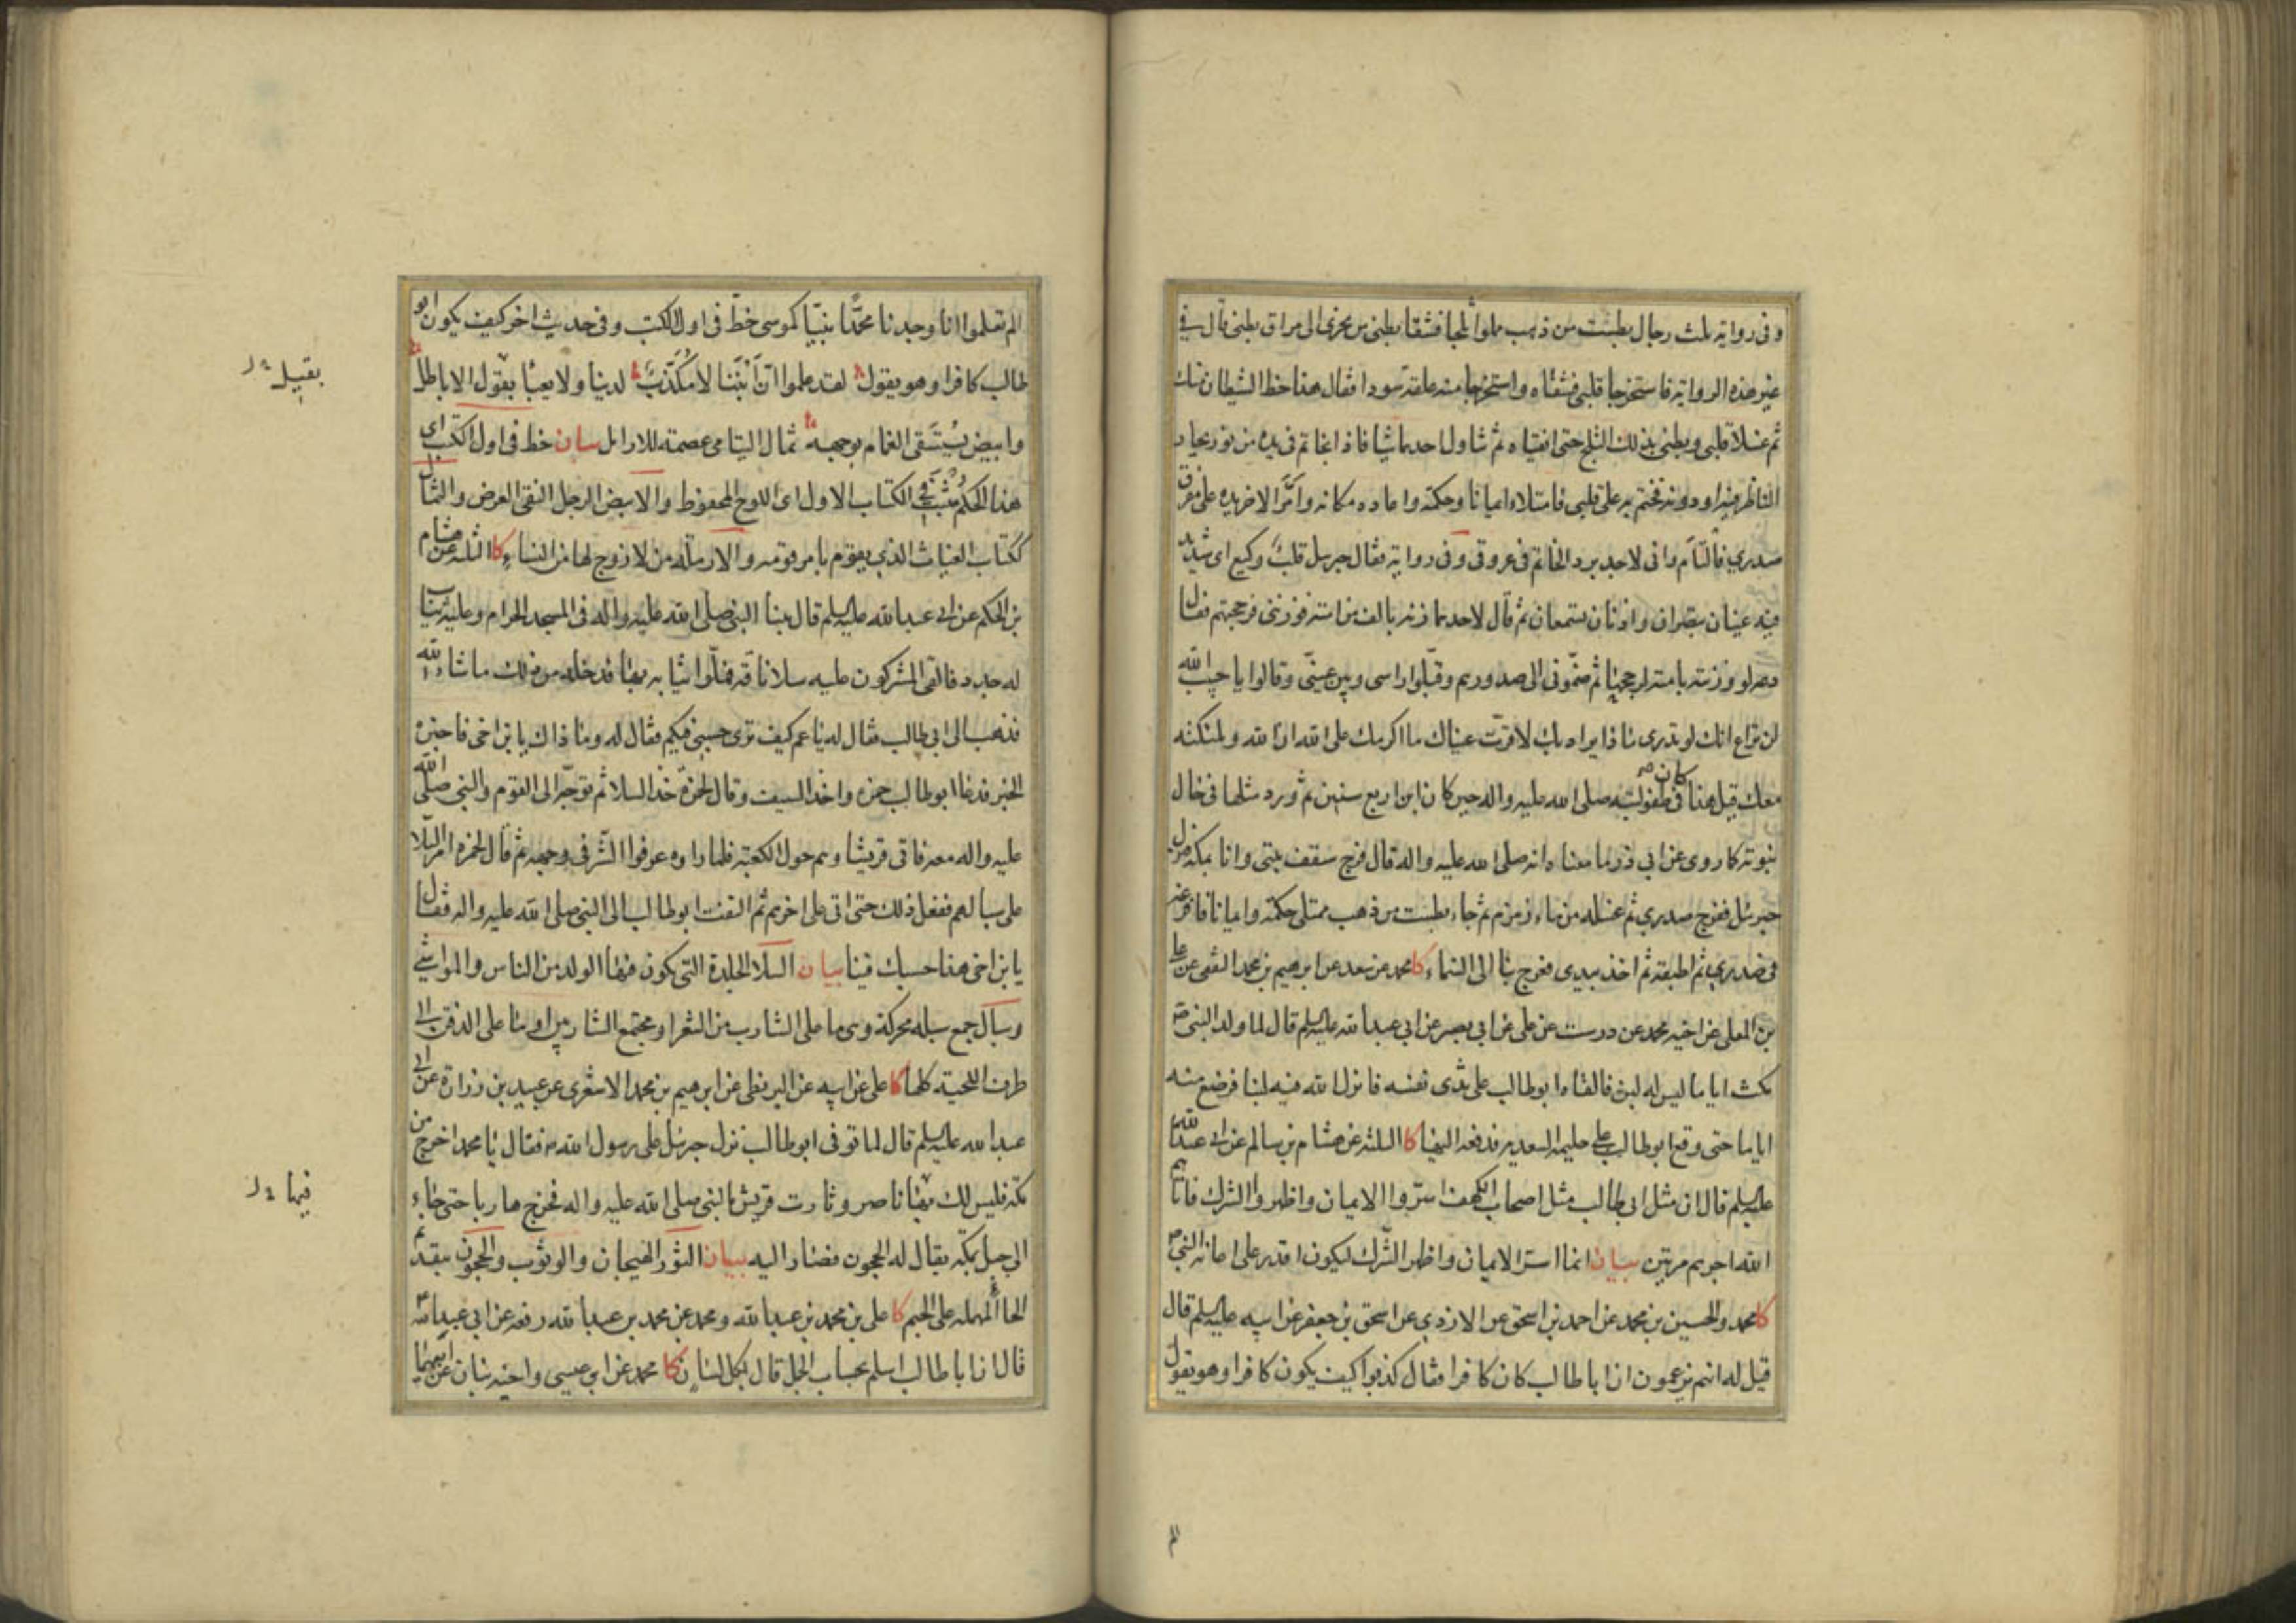 وفى رواية ثلث رجال بطست من ذهب ملوا ثلجا فشقا بطنى من نحرى الى مراق بطنى قال فى
غير هذه الرواية فاستخرجا قلبى فشقاه واستخرجا منه علقة سودا فقال هذا حظ الشيطان منك
ثم غسلا قلبى وبطنى بذلك الثلج حتى انقياه ثم تناول احدهما شيا فاذا بخاتم فى يده من نور يحار
الناظر فيه او دونه فختم به على قلبى فامتلاء ايمانا وحكمة واعاده مكانه وامرّ الاخر يده على مفرق
صدرى فالتأم وانى لاجد برد الخاتم فى عروقى وفى رواية فقال جبرئيل قلب وكيع اى شديد
فيه عينان تبصران واذنان تسمعان ثم قال لاحدهما زنه بالف من امته فوزننى فرجحتهم فقال
دعه لو وزنته بامته لرجحها ثم ضمّونى الى صدورهم وقبّلوا راسى وبين عينىّ وقالوا يا حبيب الله
لن تراع انك لو تدرى ما ذا يراد بك لاقرّت عيناك ما اكرمك على الله ان الله وملئكته
معك قيل هذا كان فى طفوليته صلى الله عليه واله حين كان ابن اربع سنين ثم ورد مثلها فى حال
نبوته كما روى عن ابى ذر ما معناه انه صلى الله عليه واله قال فرج سقف بيتى وانا بمكة فنزل
جبرئيل ففرج صدرى ثم غسله من ماء زمزم ثم جاء بطست من ذهب ممتلى حكمة وايمانا فافرغه
فى صدرى ثم اطبقه ثم اخذ بيدى فعرج بنا الى السماء كا محمد عن سعد عن ابرهيم بن محمد الثقفى عن على
بن المعلى عن اخيه محمد عن درست عن على عن ابى بصير عن ابى عبد الله عليه السلم قال لما ولد النبى ص
مكث اياما ليس له لبن فالقاه ابو طالب على ثدى نفسه فانزل الله فيه لبنا فرضع منه
اياما حتى وقع ابو طالب على حليمة السعدية فدفعه اليها كا الثلثة عن هشام بن سالم عن ابى عبد الله
عليه السلم قال ان مثل ابى طالب مثل اصحاب الكهف اسرّوا الايمان واظهروا الشرك فاتاهم
الله اجرهم مرتين بيان انما اسرّ الايمان واظهر الشرك ليكون اقدر على اعانة النبى ص
كا محمد والحسين بن محمد عن احمد بن اسحق عن الازدى عن اسحق بن جعفر عن ابيه عليه السلم قال
قيل له انهم يزعمون ان ابا طالب كان كافرا فقال كذبوا كيف يكون كافرا وهو يقول
الم تعلموا انا وجدنا محمّدا نبيّا كموسى خطّ فى اول الكتب وفى حديث اخر كيف يكون ابو
طالب كافرا وهو يقول لقد علموا انّ ابننا لا مكذّب لدينا ولا يعبأ بقول الاباطل
بقيل
وابيض يُستَسقى الغمام بوجهه ثمال اليتامى عصمة للارامل بيان خط فى اول الكتب اى
هذا الحكم مُثبَت فى الكتاب الاول اى اللوح المحفوظ والابيض الرجل النقى العرض والثمال
ككتاب الغياث الذى يقوم بامر قومه والارملة من لا زوج لها من النساء كا الثلثة عن هشام
بن الحكم عن ابى عبد الله عليه السلم قال بينا النبى صلى الله عليه واله فى المسجد الحرام وعليه ثياب
له جدد فالقى المشركون عليه سلا ناقة فملّوا ثيابه بها فدخله من ذلك ما شاء الله
فذهب الى ابى طالب فقال له يا عم كيف ترى حسبى فيكم فقال له وما ذاك يا بن اخى فاخبره
الخبر فدعا ابو طالب حمزه واخذ السيف وقال لحمزة خذ السلا ثم توجّه الى القوم والنبى صلى الله
عليه واله معه فاتى قريشا وهم حول الكعبة فلما راوه عرفوا الشر فى وجهه ثم قال لحمزه امرّ السّلا
على سبالهم ففعل ذلك حتى اتى على اخرهم ثم التفت ابو طالب الى النبى صلى الله عليه واله فقال
يا بن اخى هذا حسبك فينا بيان السلا الجلدة التى يكون فيها الولد من الناس والمواشى
وسبال جمع سبلة محركة وهى ما على الشارب من الشعر او مجتمع الشاربين او ما على الذقن الى
طرف اللحية كلها كا على عن ابيه عن البزنطى عن ابرهيم بن محمد الاشعرى عن عبيد بن زرارة عن ابى
عبد الله عليه السلم قال لما توفى ابو طالب نزل جبرئيل على رسول الله ص فقال يا محمد اخرج من
مكّة فليس لك بها ناصر وثارت قريش بالنبى صلى الله عليه واله فخرج هاربا حتى جاء
فيها
الى جبل بمكّة يقال له الحجون فصار اليه بيان الثور الهيجان والوثوب والحجون بتقديم
الحاء المهملة على الجيم كا على بن محمد بن عبد الله ومحمد عن محمد بن عبد الله رفعه عن ابى عبد الله ع
قال ان ابا طالب اسلم بحساب الجمل قال بكل لسان كا محمد عن ابن عيسى واخيه بنان عن ابيهما